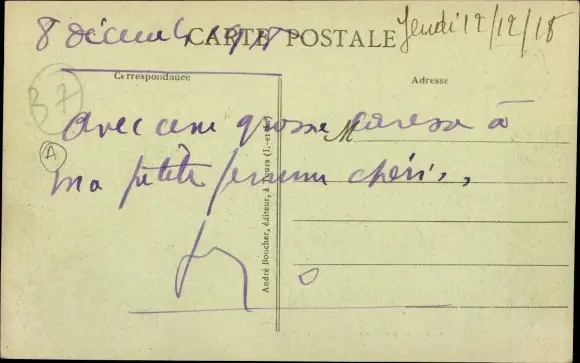 8 décemb 1918
CARTE POSTALE
Jeudi 12/12/18
Correspondance
Adresse
B7
A
avec une grosse caresse à
M
ma petite femme chérie,
André Boucher, éditeur, à Tours (I.-et-L.)